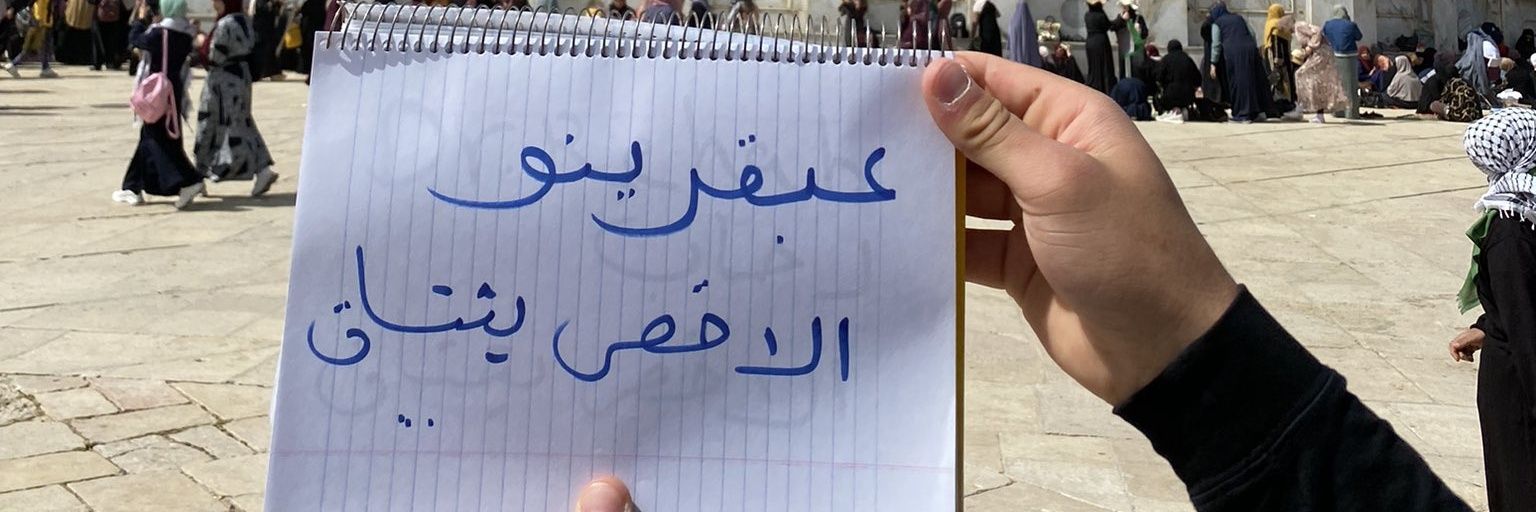 عبقرينو
الاخضر يشتاق
...